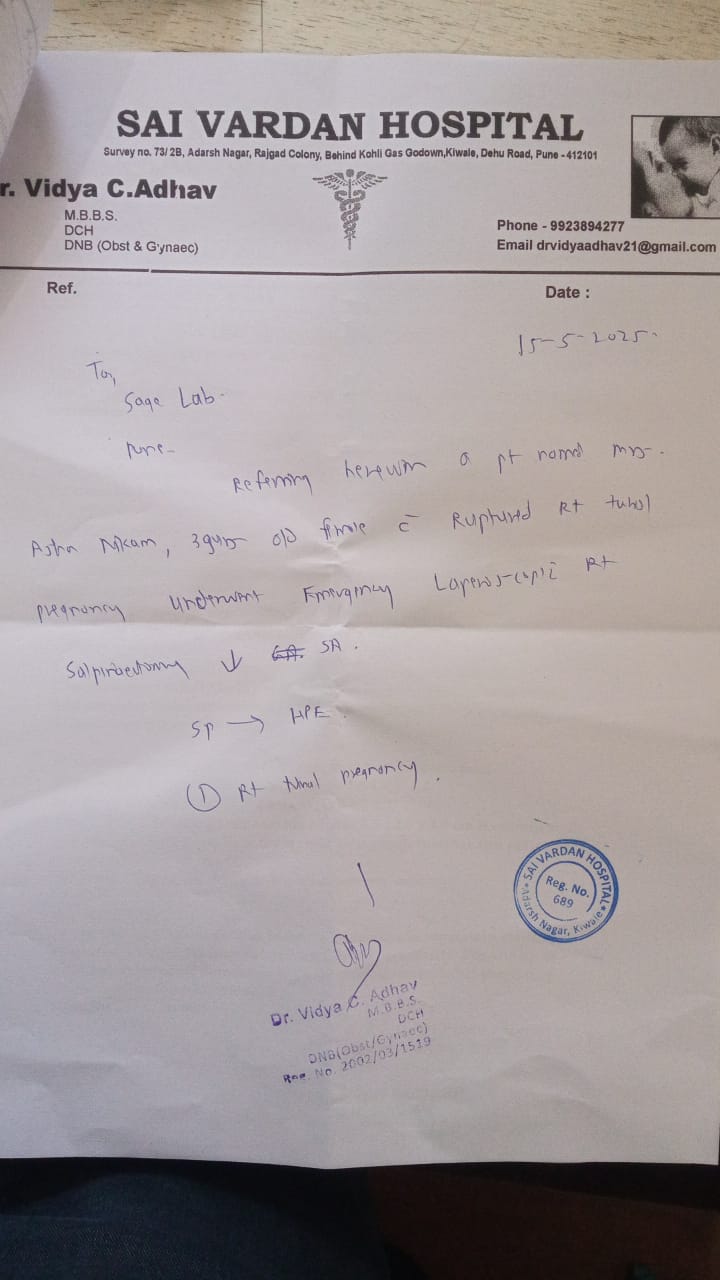 SAI VARDAN HOSPITAL
Survey no. 73/2B, Adarsh Nagar, Rajgad Colony, Behind Kohli Gas Godown,Kiwale, Dehu Road, Pune -412101
r. Vidya C.Adhav
M.B.B.S.
DCH
DNB (Obst & Gynaec)
Phone - 9923894277
Email drvidyaadhav21@gmail.com
Ref.
Date :
15-5-2025.
To,
Sage Lab.
Pune-
Referring herewith a pt named mrs.
Asha Nikam, o/D female c̄ Ruptured Rt tubal
pregnancy underwent Emergency Laparoscopic Rt
Salpingectomy ↓ SA.
Sp → HPE.
① Rt tubal pregnancy.
SAI VARDAN HOSPITAL
Reg. No.
689
Adarsh Nagar, Kiwale
Dr. Vidya C. Adhav
M.B.B.S.
DCH
DNB(Obst/Gynaec)
Reg. No. 2002/03/1519